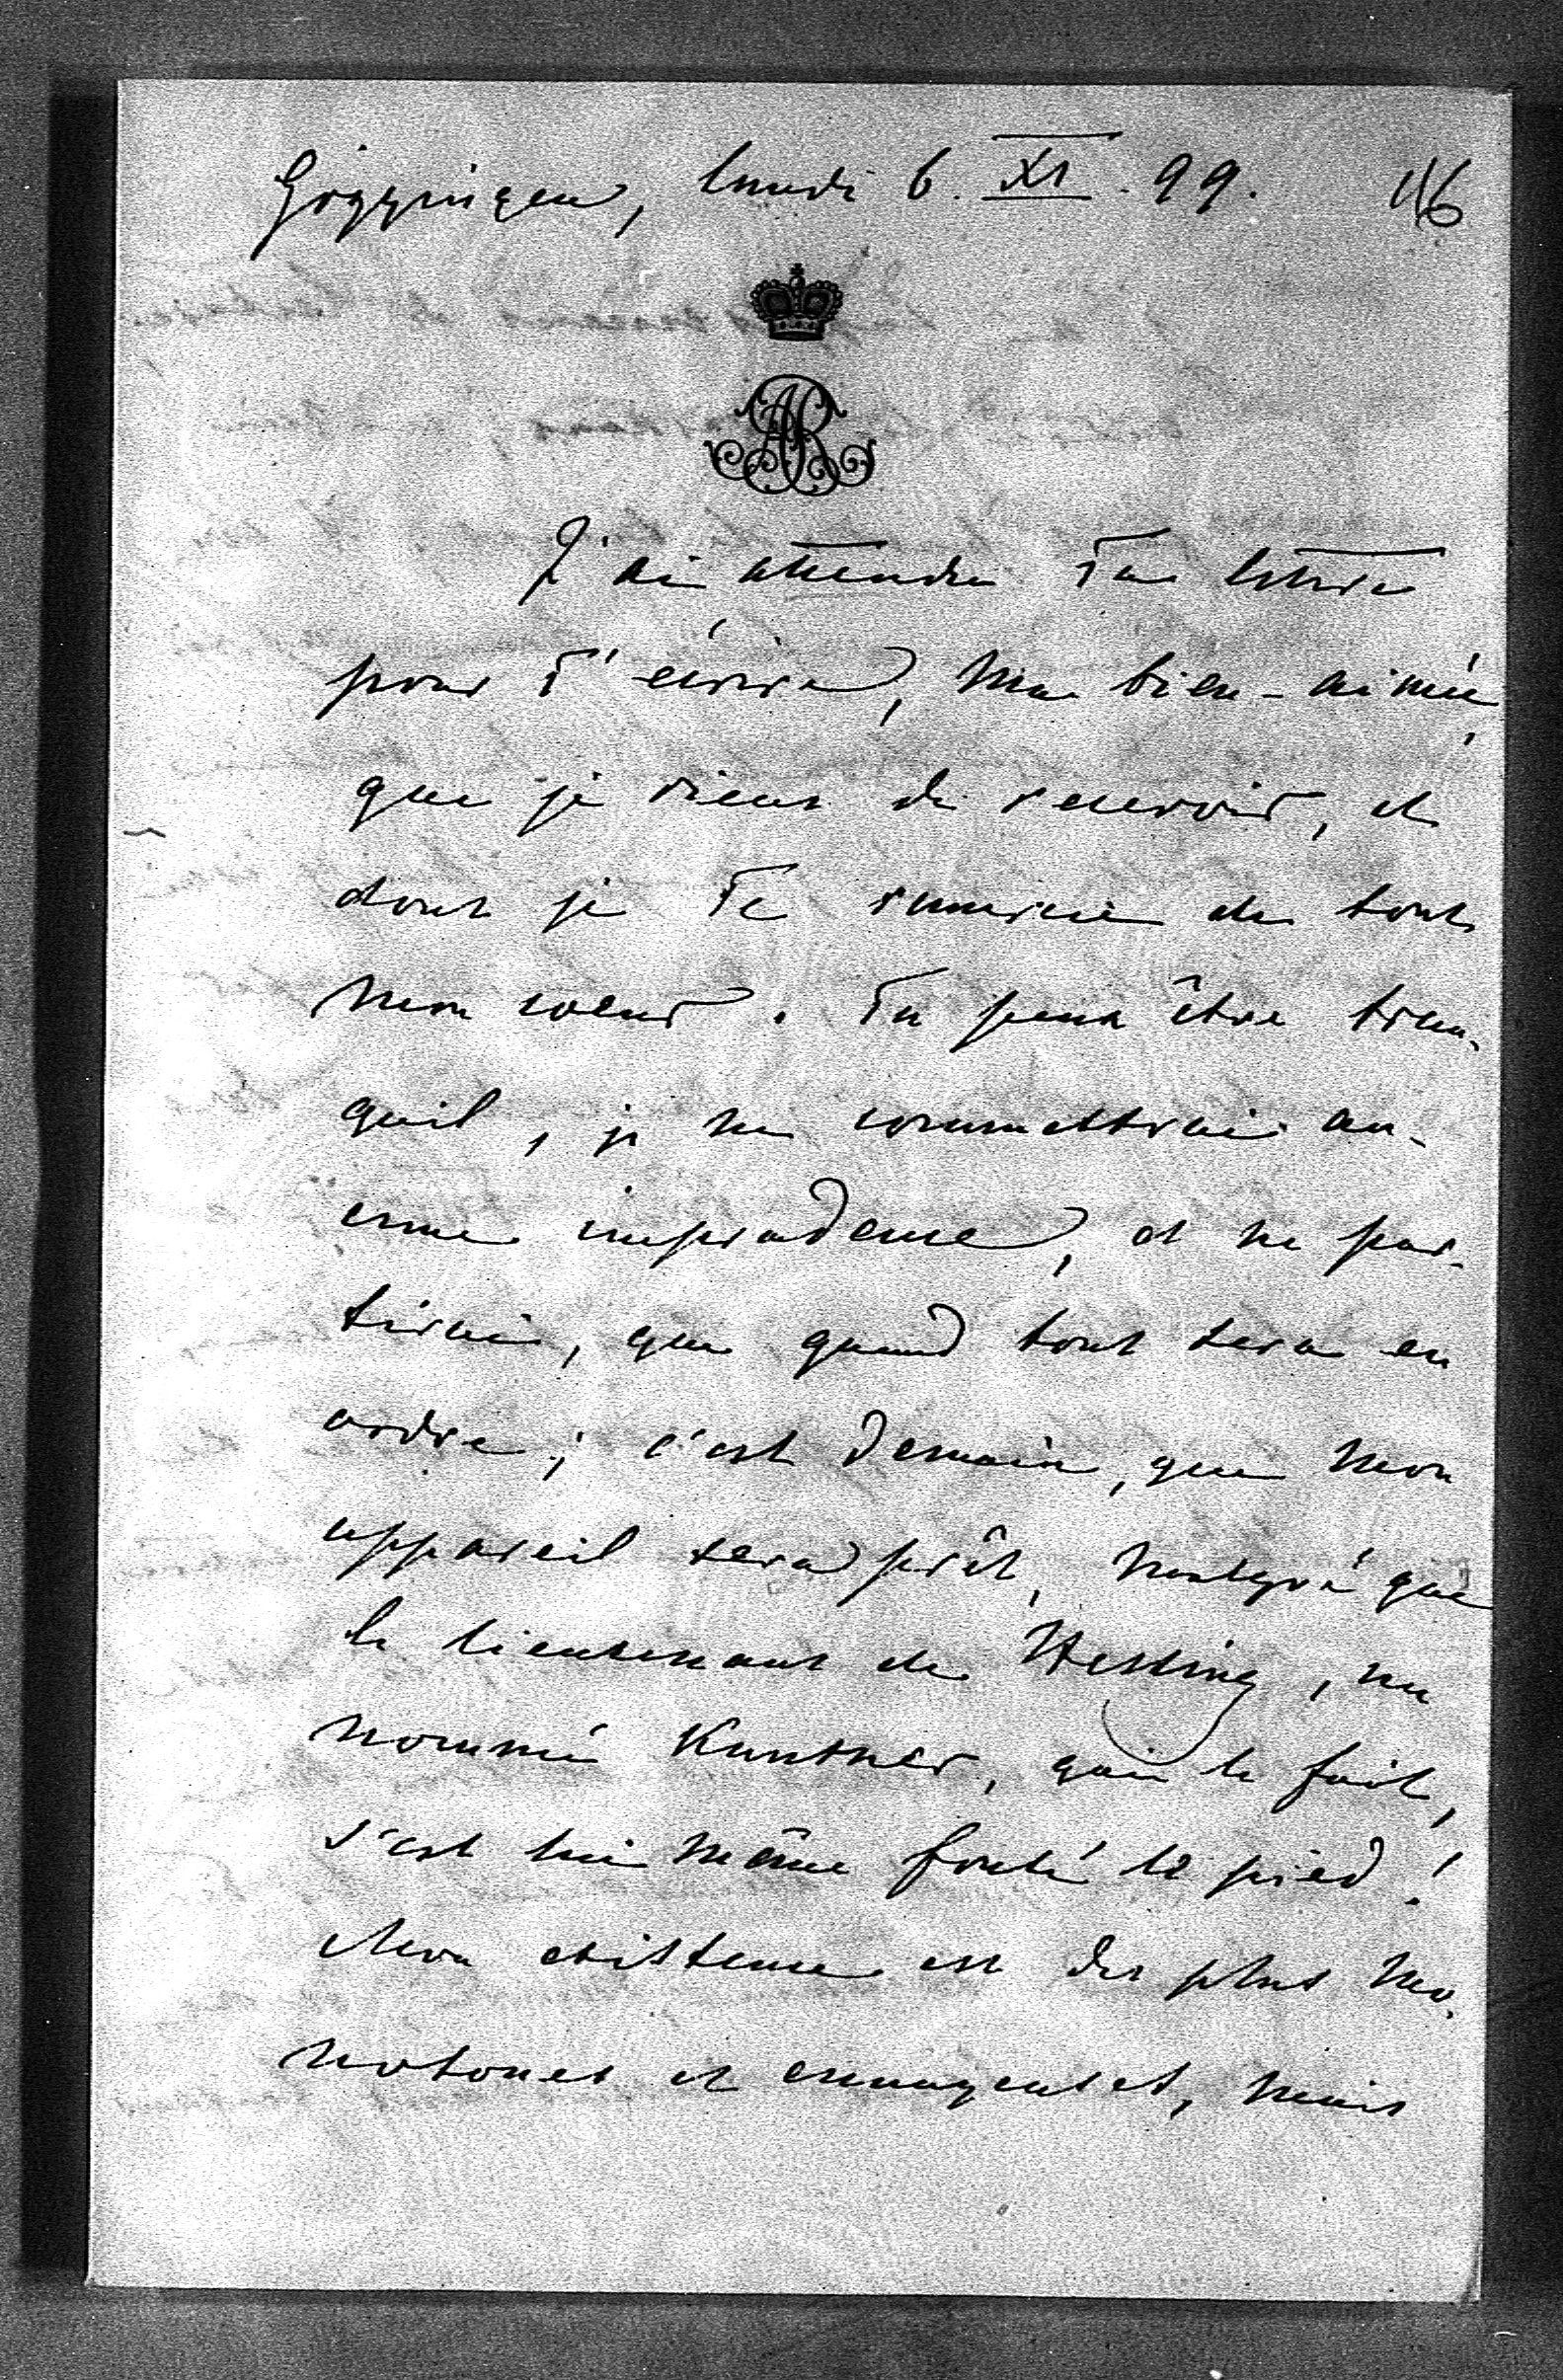 Göggingen, lundi 6. XI. 99. 116
AR
J'ai attendu Ta lettre
pour T'écrire, Ma bien-aimée,
que je viens de recevoir, et
dont je Te remercie de tout
Mon coeur. Tu peux être tran-
quil, je ne commettrai au-
cune imprudence, et ne par-
tirai, que quand tout sera en
ordre; c'est demain, que Mon
appareil sera prêt, Malgré que
le lieutenant de Hessing, un
nommé Kuntner, qui le fait,
s'est lui même foulé le pied!
Mon existence est des plus Mo-
notones et ennuyeuses, Mais